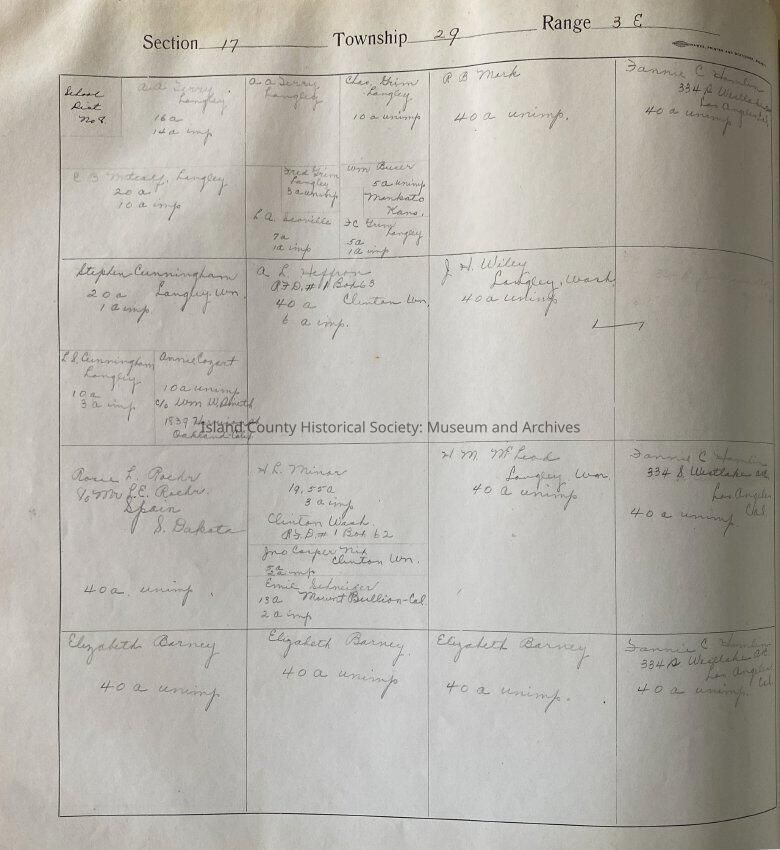 Section 17 Township 29 Range 3 E
School
Dist
No 8.
A.A. Terry
Langley
16 a
14 a imp
A A Terry
Langley
Chas. Grim
Langley
10 a unimp
R B Merk
40 a unimp.
Fannie C Hamlin
334 S Westlake
Los Angeles
40 a unimp
C B Metcalf, Langley
20 a
10 a imp
Fred Grim
Langley
3 a unimp
Wm Buser
5 a unimp
Mankato
Kans.
L A.
7 a
1 a imp
F C Grim
Langley
5 a
1 a imp
Stephen Cunningham
20 a Langley. Wn.
1 a imp.
A L Heffron
R F D. # 1 Box 63
40 a Clinton Wn.
6 a imp.
J H. Wiley
Langley, Wash
40 a unimp
L S. Cunningham
Langley
10 a
3 a imp
Annie Cozart
10 a unimp
c/o Wm W. Smith
1839
Oakland Calif
Island County Historical Society: Museum and Archives
Rosie L. Roehr
c/o Mr L. E. Roehr.
Spain
S. Dakota
40 a. unimp.
H L. Minor
19.55 a
3 a imp
Clinton Wash.
R F. D. # 1 Box 62
Jno Casper Nix
Clinton Wn.
5 a
imp
Emil Schneider
13 a Mount Bullion-Cal.
2 a imp
H M. McLeod
Langley Wn.
40 a unimp
Fannie C Hamlin
334 S. Westlake
Los Angeles
Cal.
40 a unimp.
Elizabeth Barney
40 a unimp
Elizabeth Barney.
40 a unimp
Elizabeth Barney
40 a unimp.
Fannie C Hamlin
334 S Westlake
Los Angeles
Cal
40 a unimp.